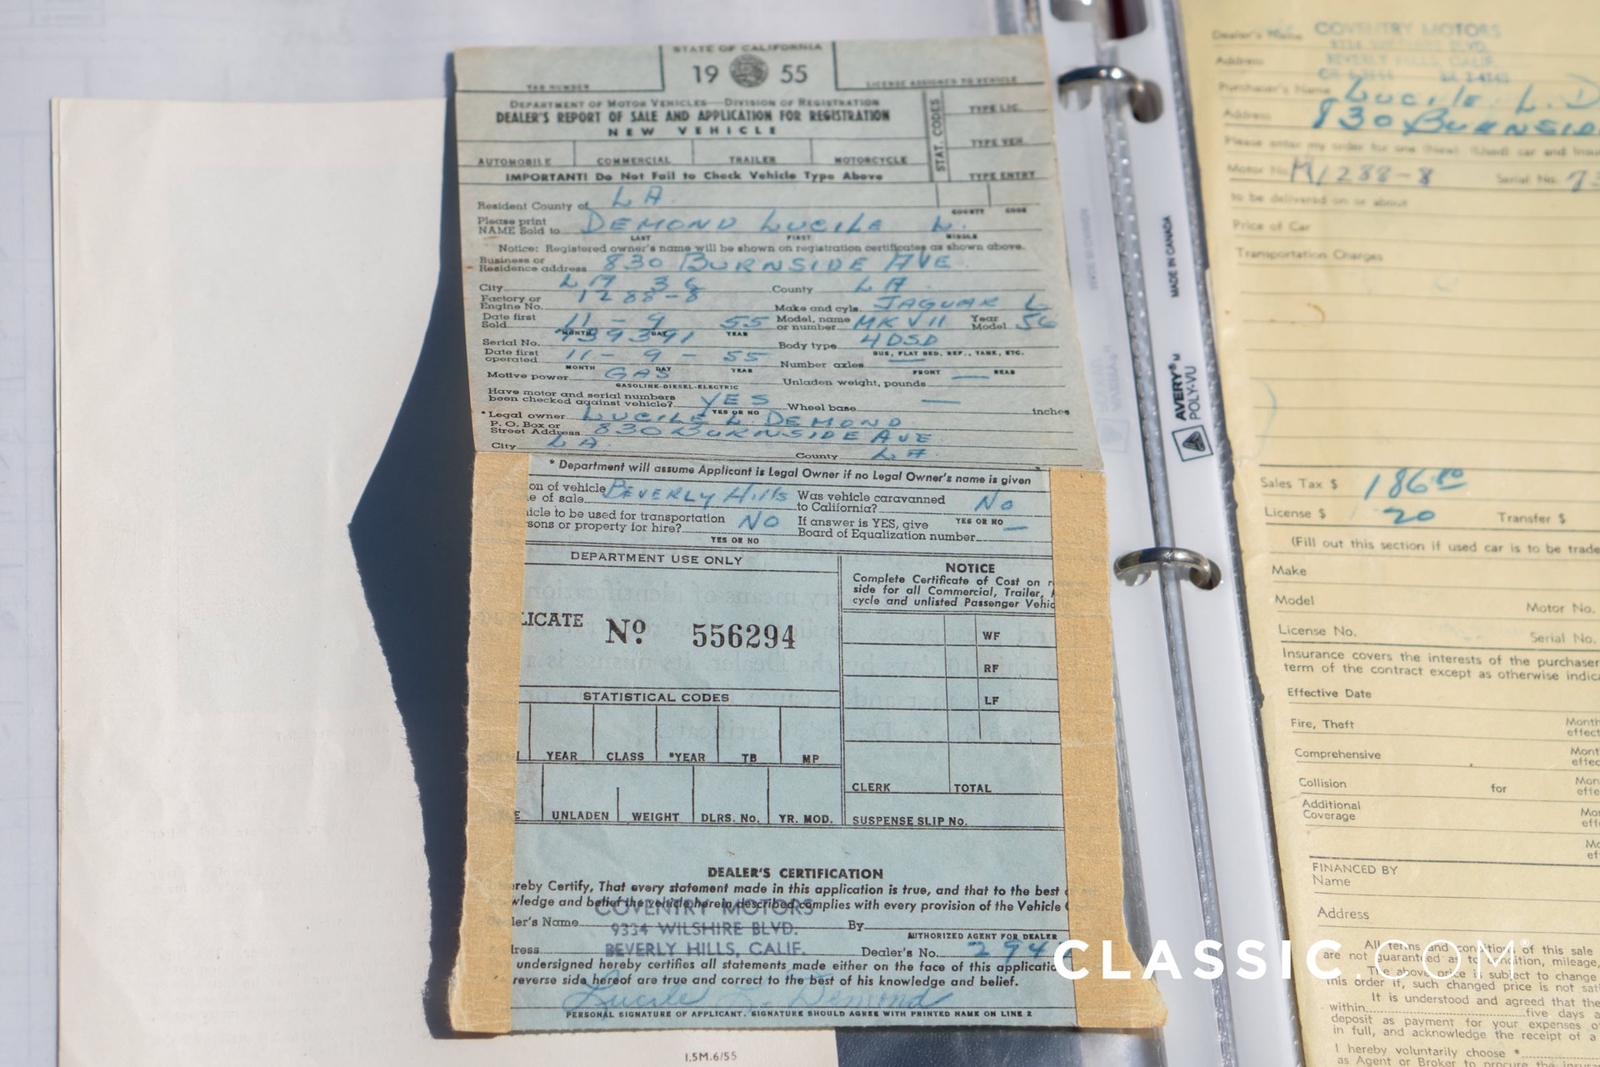 STATE OF CALIFORNIA
19 55
TAB NUMBER
LICENSE ASSIGNED TO VEHICLE
DEPARTMENT OF MOTOR VEHICLES—DIVISION OF REGISTRATION
DEALER'S REPORT OF SALE AND APPLICATION FOR REGISTRATION
NEW VEHICLE
STAT. CODES
TYPE LIC.
TYPE VEH.
TYPE ENTRY
AUTOMOBILE COMMERCIAL TRAILER MOTORCYCLE
IMPORTANT! Do Not Fail to Check Vehicle Type Above
Resident County of LA
COUNTY CODE
Please print
NAME Sold to DEMOND LUCILE L.
LAST FIRST MIDDLE
Notice: Registered owner's name will be shown on registration certificates as shown above.
Business or
Residence address 830 BURNSIDE AVE
City LA 36 County LA
Factory or
Engine No. 1288-8 Make and cyls. JAGUAR
Date first
Sold 11-9 55 Model, name
or number MK VII Year
Model 56
MONTH DAY YEAR
Serial No. 739391 Body type 4DSD
BUS, FLAT BED, REF., TANK, ETC.
Date first
operated 11-9-55 Number axles
MONTH DAY YEAR FRONT REAR
Motive power GAS Unladen weight, pounds
GASOLINE-DIESEL-ELECTRIC
Have motor and serial numbers
been checked against vehicle? YES Wheel base inches
YES OR NO
*Legal owner LUCILE L DEMOND
P. O. Box or
Street Address 830 BURNSIDE AVE
City LA County LA
* Department will assume Applicant is Legal Owner if no Legal Owner's name is given
on of vehicle
e of sale BEVERLY HILLS Was vehicle caravanned
to California? NO
YES OR NO
icle to be used for transportation
sons or property for hire? NO If answer is YES, give
Board of Equalization number
YES OR NO
DEPARTMENT USE ONLY
NOTICE
Complete Certificate of Cost on r
side for all Commercial, Trailer,
cycle and unlisted Passenger Vehic
LICATE No 556294
WF
RF
LF
STATISTICAL CODES
YEAR CLASS *YEAR TB MP
CLERK TOTAL
UNLADEN WEIGHT DLRS. No. YR. MOD.
SUSPENSE SLIP No.
DEALER'S CERTIFICATION
reby Certify, That every statement made in this application is true, and that to the best
wledge and belief the vehicle herein described complies with every provision of the Vehicle
COVENTRY MOTORS
ler's Name 9334 WILSHIRE BLVD. By
AUTHORIZED AGENT FOR DEALER
dress BEVERLY HILLS, CALIF. Dealer's No. 294
undersigned hereby certifies all statements made either on the face of this applicatio
reverse side hereof are true and correct to the best of his knowledge and belief.
Lucile L. Demond
PERSONAL SIGNATURE OF APPLICANT. SIGNATURE SHOULD AGREE WITH PRINTED NAME ON LINE 2
1.5M.6/55
MADE IN CANADA
AVERY
POLY-VU
Dealer's Name COVENTRY MOTORS
9334 WILSHIRE BLVD.
Address BEVERLY HILLS, CALIF.
Purchaser's Name LUCILE L. D
Address 830 BURNSID
Please enter my order for one (New) (Used) car and
Motor No. N1288-8 Serial No. 73
to be delivered on or about
Price of Car
Transportation Charges
Sales Tax $ 186
License $ 20 Transfer $
(Fill out this section if used car is to be trade
Make
Model Motor No.
License No. Serial No.
Insurance covers the interests of the purchaser
term of the contract except as otherwise indic
Effective Date
Fire, Theft Month
effect
Comprehensive Mont
effe
Collision for Mon
effe
Additional
Coverage Mo
eff
FINANCED BY
Name
Address
All terms and conditions of this sale
are not guaranteed as to condition, mileage,
The above price is subject to change
this order if, such changed price is not sat
It is understood and agreed that the
within five days a
deposit as payment for your expenses o
in full, and acknowledge the receipt of a
I hereby voluntarily choose *
as Agent or Broker to procure the insur
CLASSIC.COM